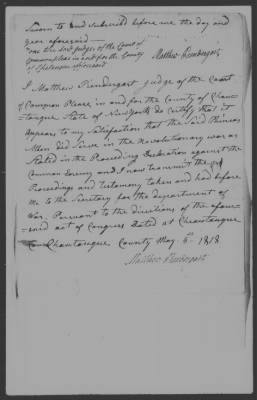 Sworn to and subscribed before me the day and
year aforesaid —
one the sd Judges of the Court of
Common pleas in and for the County
of Chatauque aforesaid
Matthew Prendergast
I Matthew Prendergast Judge of the Court
of Common Pleas in and for the County of Chau-
-tauque State of New York do Certify that it
Appears to my Satisfaction that the Said Phineas
Allen did Serve in the Revolutionary war as
Stated in the Preceding Declaration against the
Common Enemy and I now transmit the
Proceedings and testimony taken and had before
me to the Secretary for the department of
War Pursuant to the directions of the afore-
-said act of Congress Dated at Chautauque
Chautauque County May 5th 1818
Matthew Prendergast